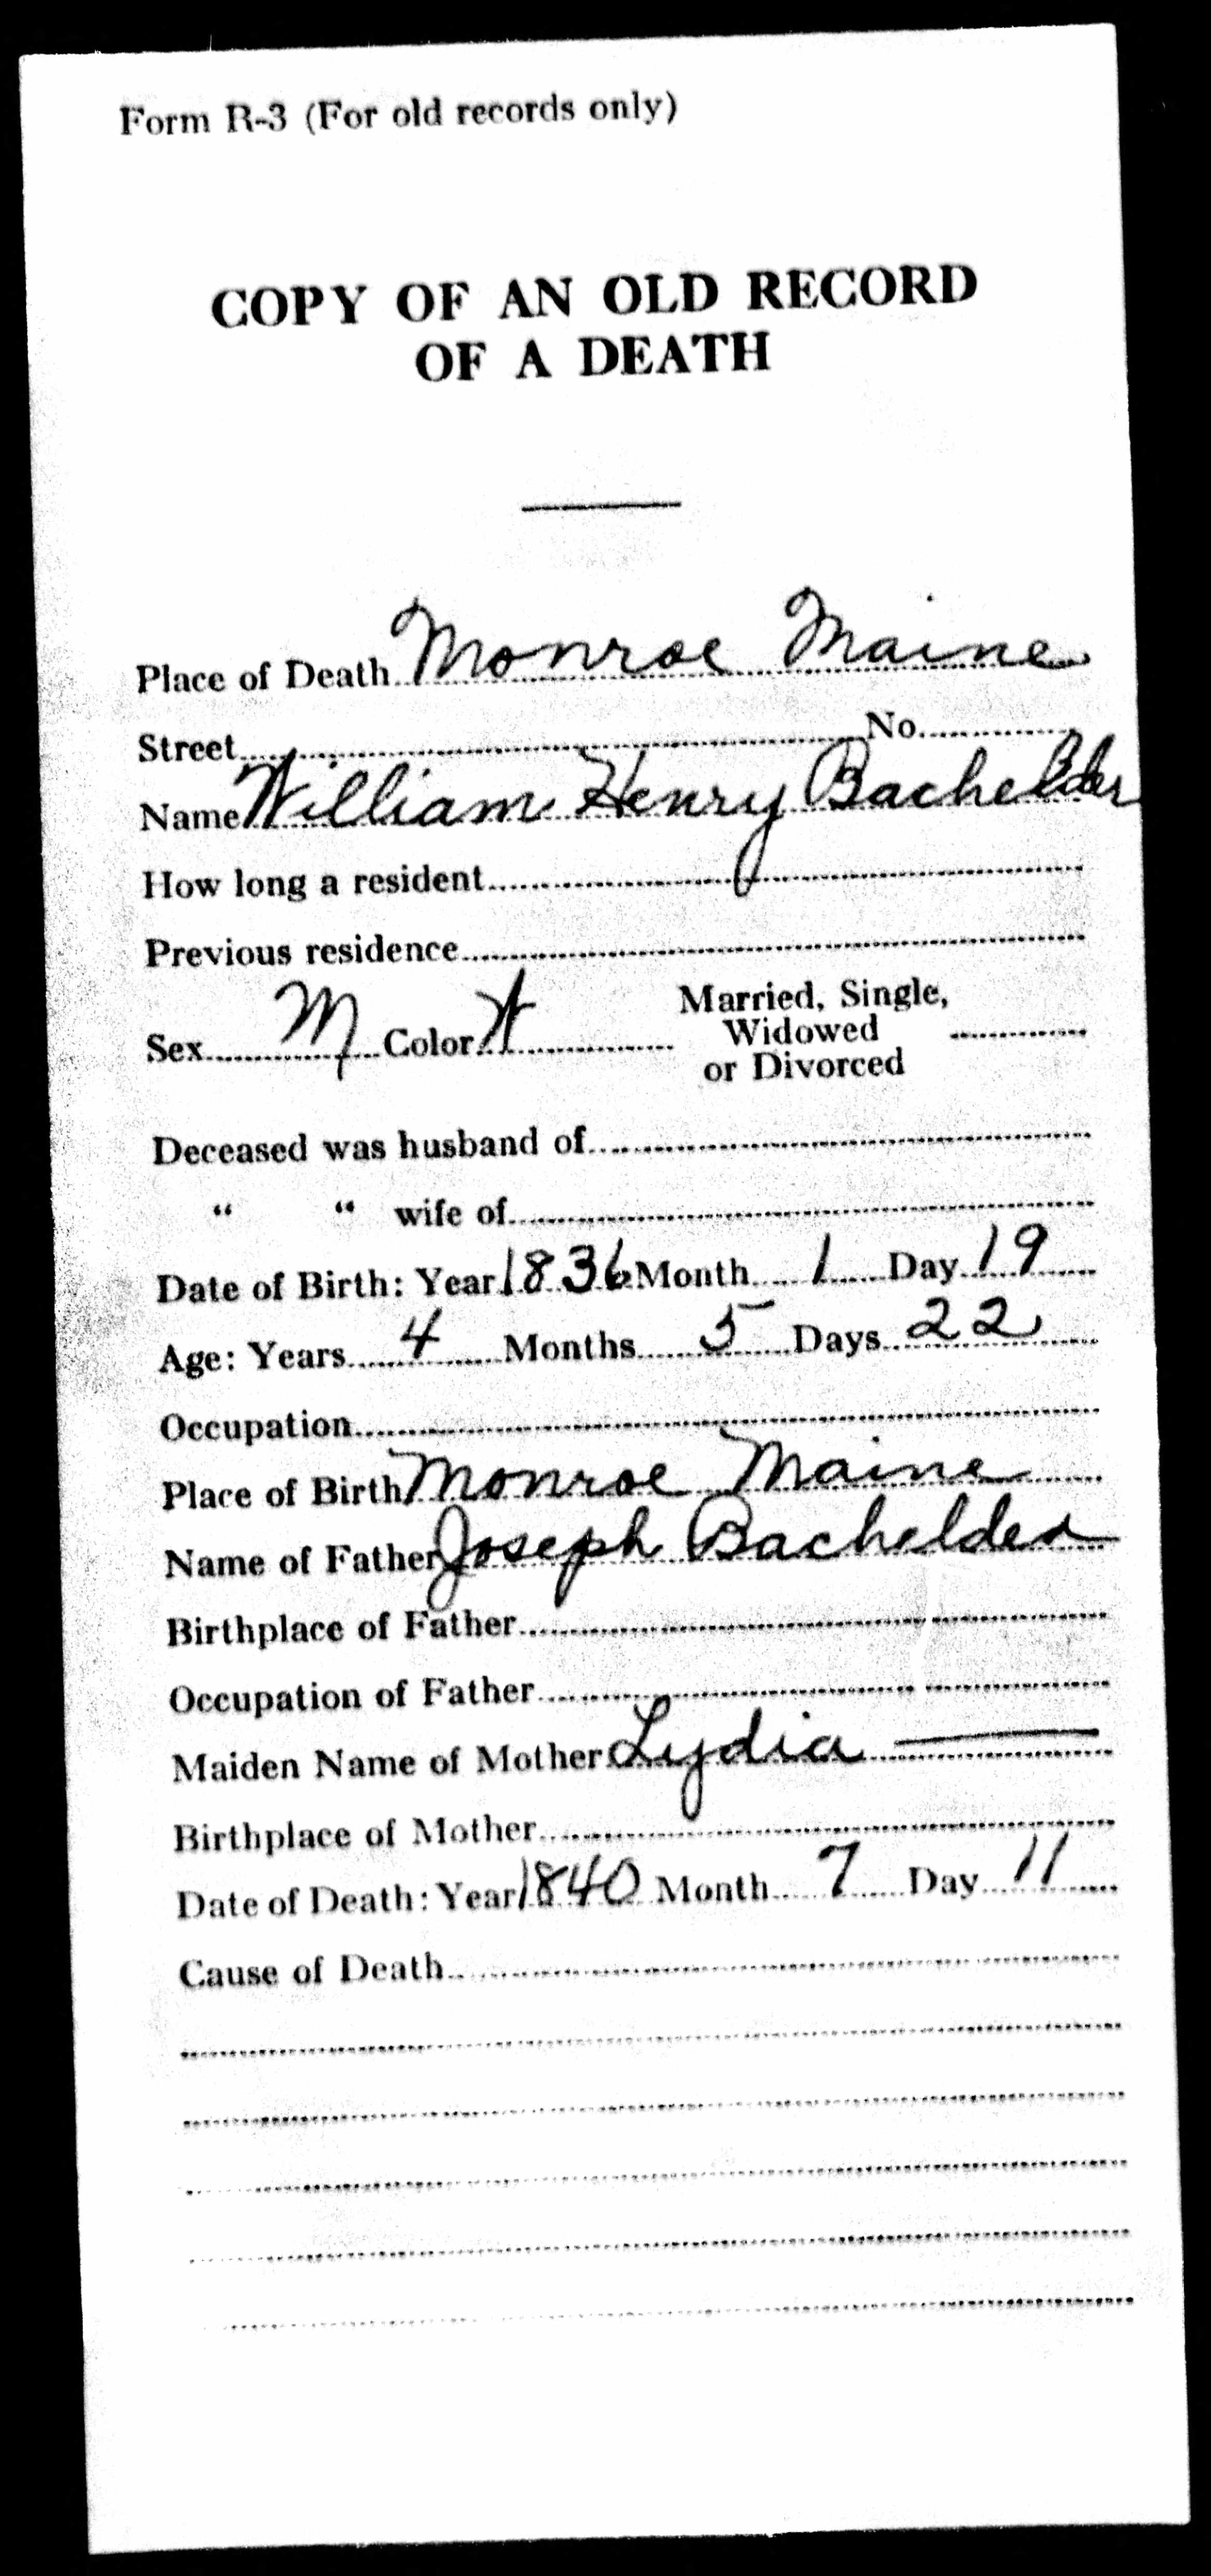 Form R-3 (For old records only)
COPY OF AN OLD RECORD
OF A DEATH
Place of Death Monroe Maine
Street No.
Name William Henry Bachelder
How long a resident
Previous residence
Sex M Color W Married, Single, Widowed or Divorced
Deceased was husband of
" " wife of
Date of Birth: Year 1836 Month 1 Day 19
Age: Years 4 Months 5 Days 22
Occupation
Place of Birth Monroe Maine
Name of Father Joseph Bachelder
Birthplace of Father
Occupation of Father
Maiden Name of Mother Lydia —
Birthplace of Mother
Date of Death: Year 1840 Month 7 Day 11
Cause of Death